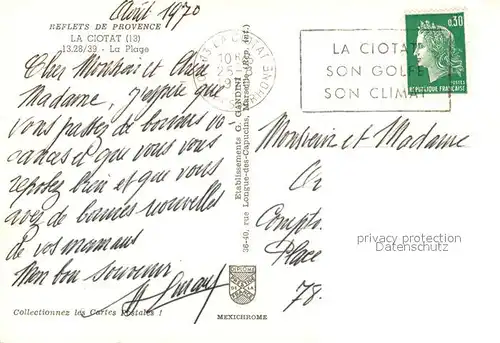 Août 1970
REFLETS DE PROVENCE
LA CIOTAT (13)
13.28/39 - La Plage
Cher Monsieur et Chère
Madame, J'espère que
vous passez de bonnes va-
cances et que vous vous
reposez bien et que vous
avez de bonnes nouvelles
de vos mamans
Mon bon souvenir
Collectionnez les Cartes Postales !
13 LA CIOTAT
RHONE
LA CIOTAT
SON GOLFE
SON CLIMAT
0,30
POSTES
REPUBLIQUE FRANCAISE
Etablissements G. GANDINI
36-40, rue Longue-des-Capucins, Marseille (Rép. inf.)
Monsieur et Madame
Compto
Place
78.
privacy protection
Datenschutz
MEXICHROME